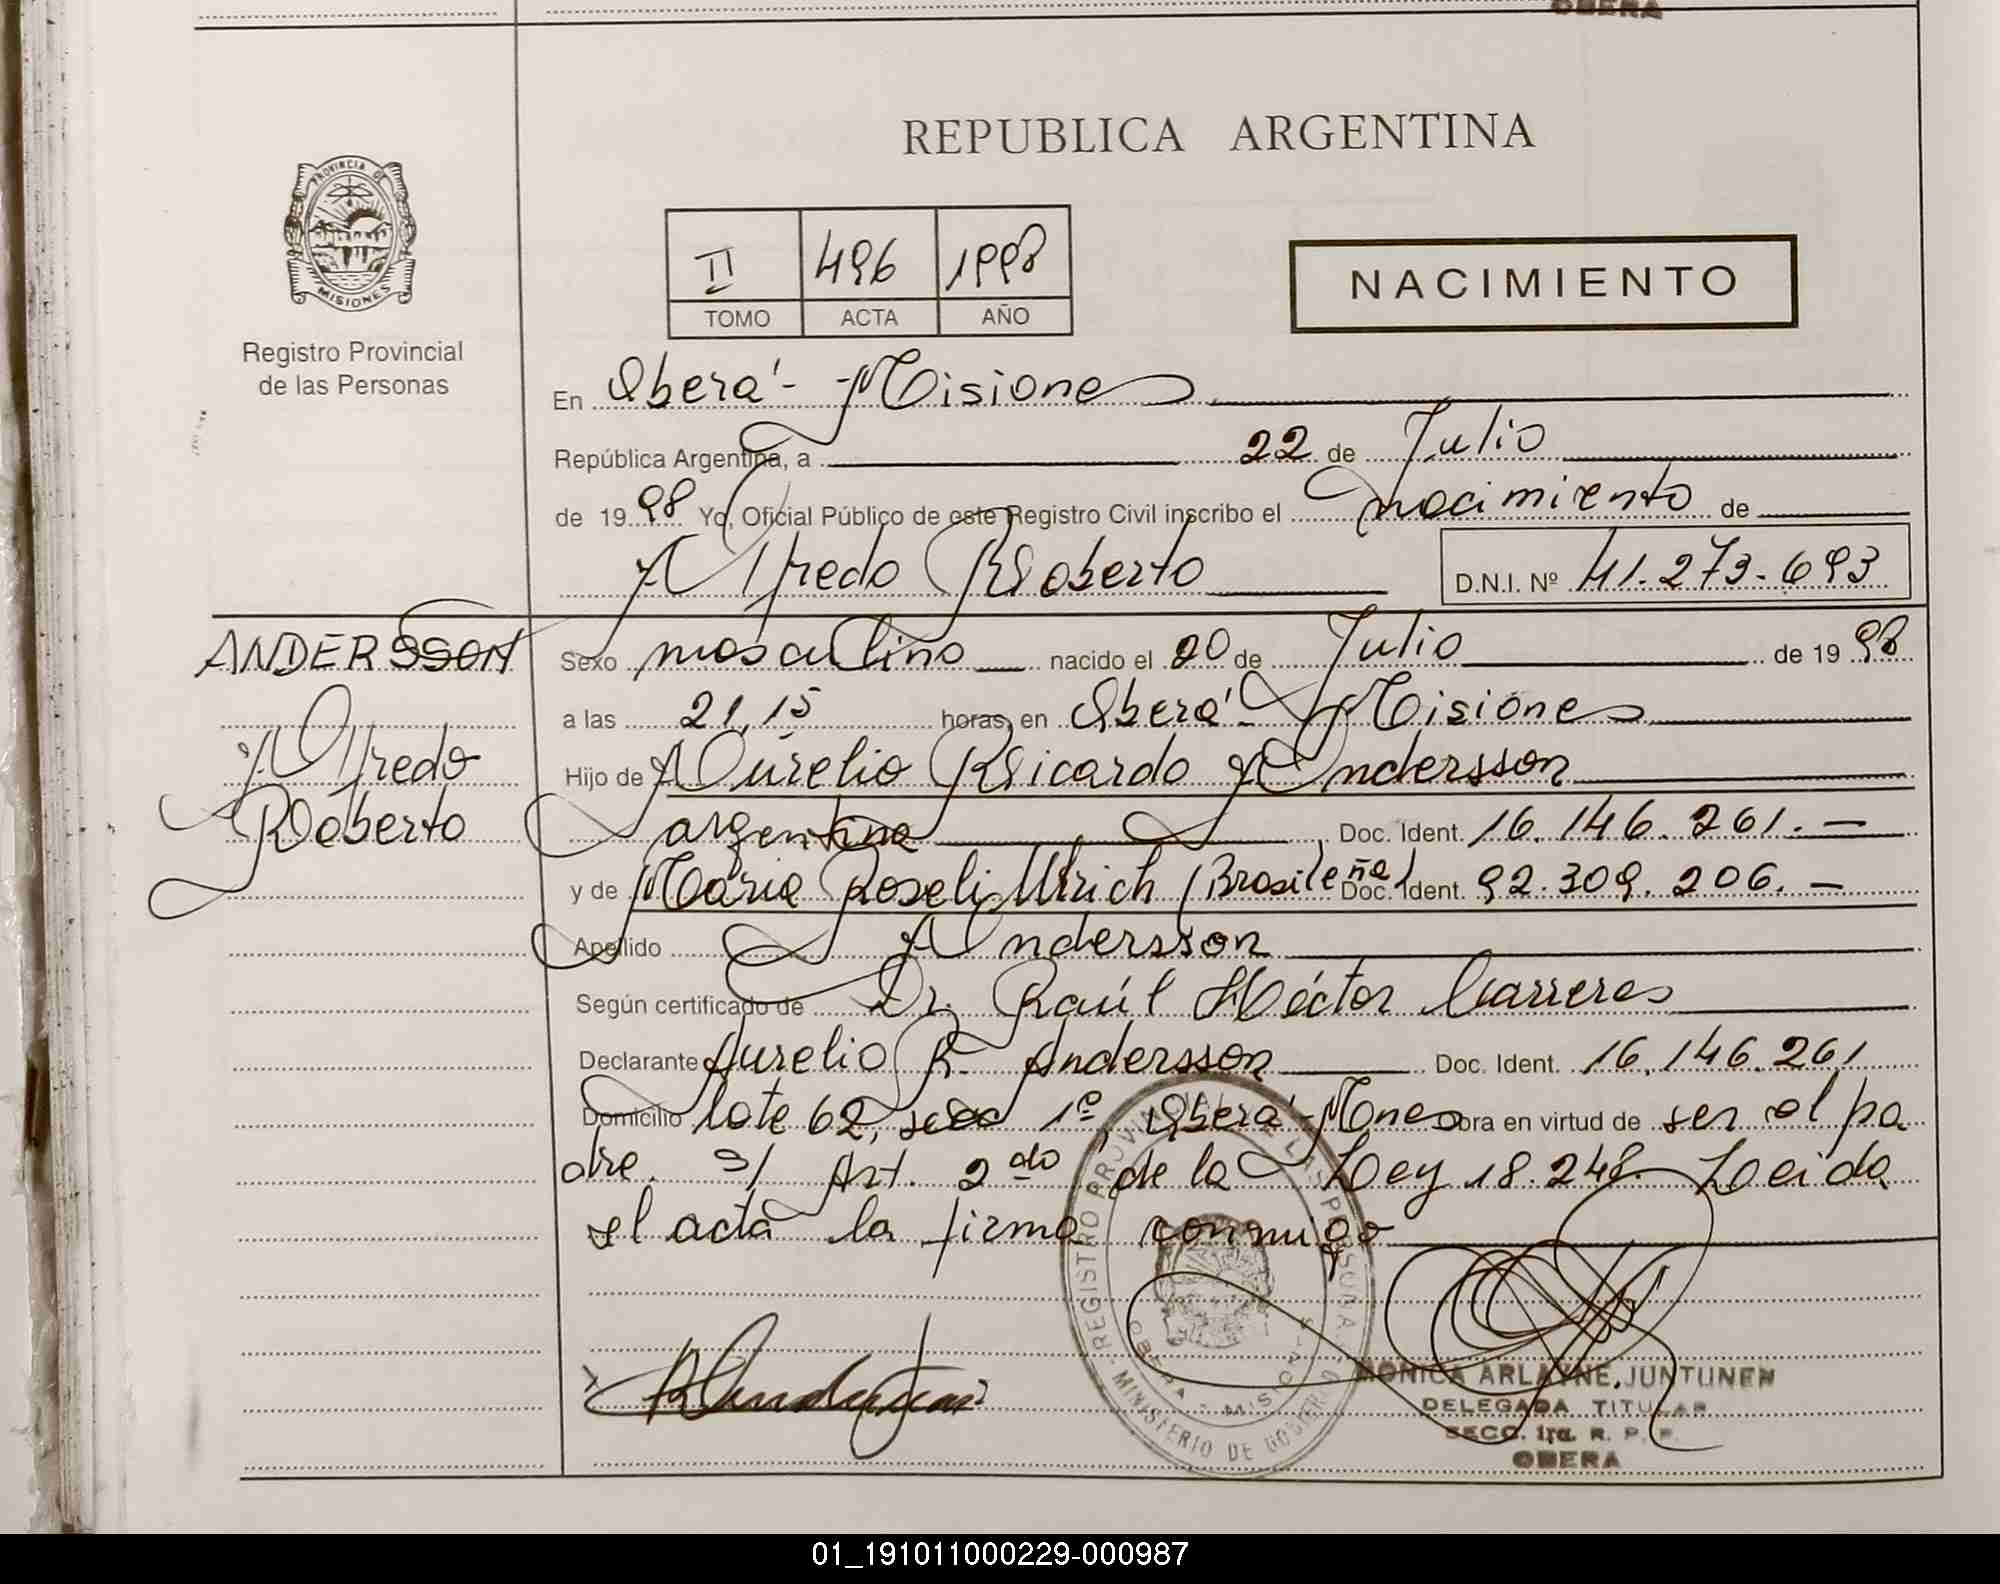 OBERA
REPUBLICA ARGENTINA
PROVINCIA DE
MISIONES
Registro Provincial
de las Personas
II 496 1998
TOMO ACTA AÑO
NACIMIENTO
En Oberá - Misiones
República Argentina, a 22 de Julio
de 19 98 Yo, Oficial Público de este Registro Civil inscribo el nacimiento de
Alfredo Roberto D.N.I. Nº 41.273.693
ANDERSSON
Alfredo
Roberto
Sexo masculino nacido el 20 de Julio de 19 98
a las 21,15 horas, en Oberá - Misiones
Hijo de Aurelio Ricardo Andersson
argentina Doc. Ident. 16.146.261.-
y de Maria Roseli Ulrich (Brasileña) Doc. Ident. 92.309.206.-
Apellido Andersson
Según certificado de Dr. Raúl Héctor Carreras
Declarante Aurelio R. Andersson Doc. Ident. 16.146.261
Domicilio lote 62, secc 1ª, Oberá - Mnes Obra en virtud de ser el pa
dre. s/ Art. 2do de la Ley 18.248. Leida
el acta la firma conmigo
REGISTRO PROVINCIAL DE LAS PERSONAS
MINISTERIO DE GOBIERNO
OBERA - MISIONES
MONICA ARLAYNE JUNTUNEN
DELEGADA TITULAR
SECC. 1ra. R. P. P.
OBERA
01_191011000229-000987